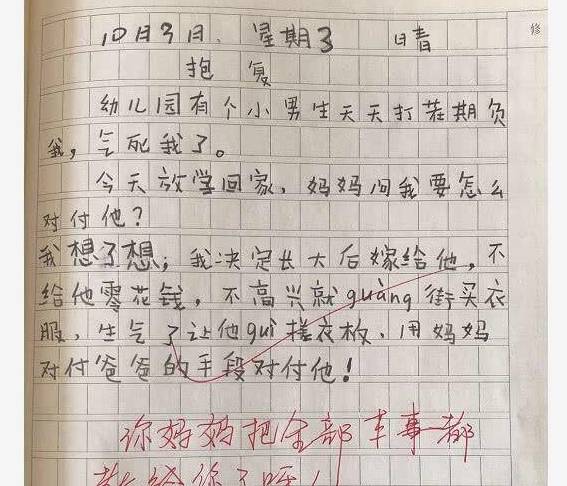 修
10月3日. 星期3 晴
抱 复
幼儿园有个小男生天天打茬期负
我，气死我了。
今天放学回家，妈妈问我要怎么
对付他？
我想了想，我决定长大后嫁给他，不
给他零花钱，不高兴就guàng街买衣
服，生气了让他guì搓衣板、用妈妈
对付爸爸的手段对付他！
你妈妈把全部本事都
教给你了呀！